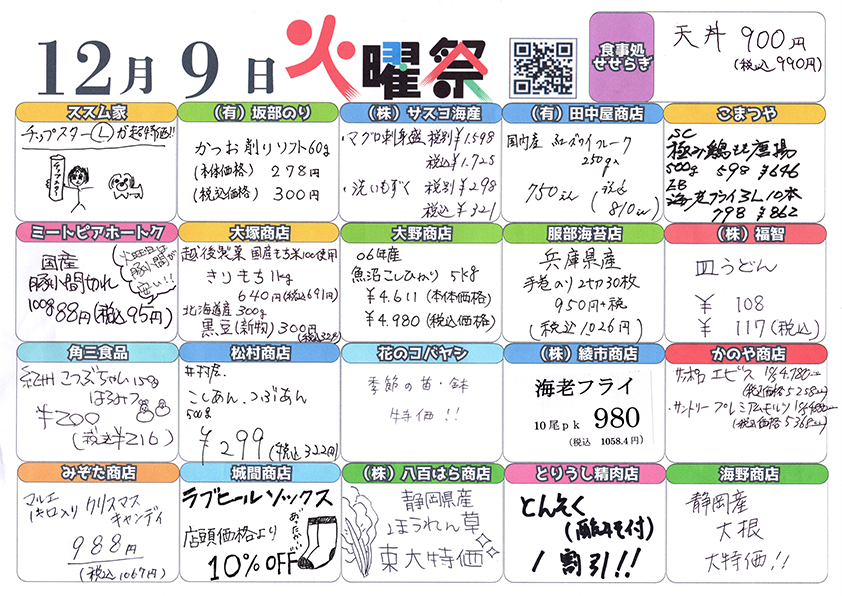 12月9日 火曜祭
食事処
せせらぎ
天丼 900円
(税込990円)
ススム家
チップスター(L)が超特価!!
チップスター
(有)坂部のり
かつお削りソフト60g
(本体価格) 278円
(税込価格) 300円
(株)サスヨ海産
・マグロ刺身盛 税別¥1.598
税込¥1.725
・洗いもずく 税別¥298
税込¥321
(有)田中屋商店
国内産 紅ズワイフレーク
250g入
750えん
(税込810えん)
こまつや
SC
極み鶏もも唐揚
500g 598 ¥646
EB
海老フライ3L10本
798 ¥862
ミートピアホートク
国産
豚小間切れ
100g 88円(税込95円)
火曜日は
豚小間が
安い!!
大塚商店
越後製菓 国産もち米100使用
きりもち1kg
640円(税込691円)
北海道産 300g
黒豆(新物) 300円
(税込324)
大野商店
06年産
魚沼こしひかり 5kg
¥4.611 (本体価格)
¥4.980 (税込価格)
服部海苔店
兵庫県産
手巻のり2切30枚
950円+税
(税込1026円)
(株)福智
皿うどん
¥ 108
¥ 117(税込)
角三食品
紀州 こつぶちゃん 150g
はちみつ
¥200
(税込¥216)
松村商店
井村屋.
こしあん.つぶあん
500g
¥299(税込322円)
花のコバヤシ
季節の苗・鉢
特価!!
(株)綾市商店
海老フライ
10尾pk 980
(税込 1058.4円)
かのや商店
・サッポロ エビス 1c/s 4.780
(税込価格5258
・サントリー プレミアムモルツ 1c/s
(税込価格5368
みぞた商店
マルエ
1キロ入り クリスマス
キャンディ
988円
(税込1067円)
城間商店
ラブヒールソックス
店頭価格より
10%OFF
あったかい
(株)八百はら商店
静岡県産
ほうれん草
東大特価
とりうし精肉店
とんそく
(酢みそ付)
1割引!!
海野商店
静岡産
大根
大特価!!